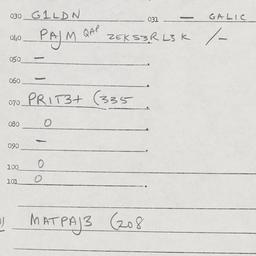 030 G1LDN 031 — GALIC
040 PAJM QAP ZEKS3RL3K /-
050 —
060 —
070 PRIT3+ (335
080 0
090 —
100 0
101 0
MATPAJ3 (208